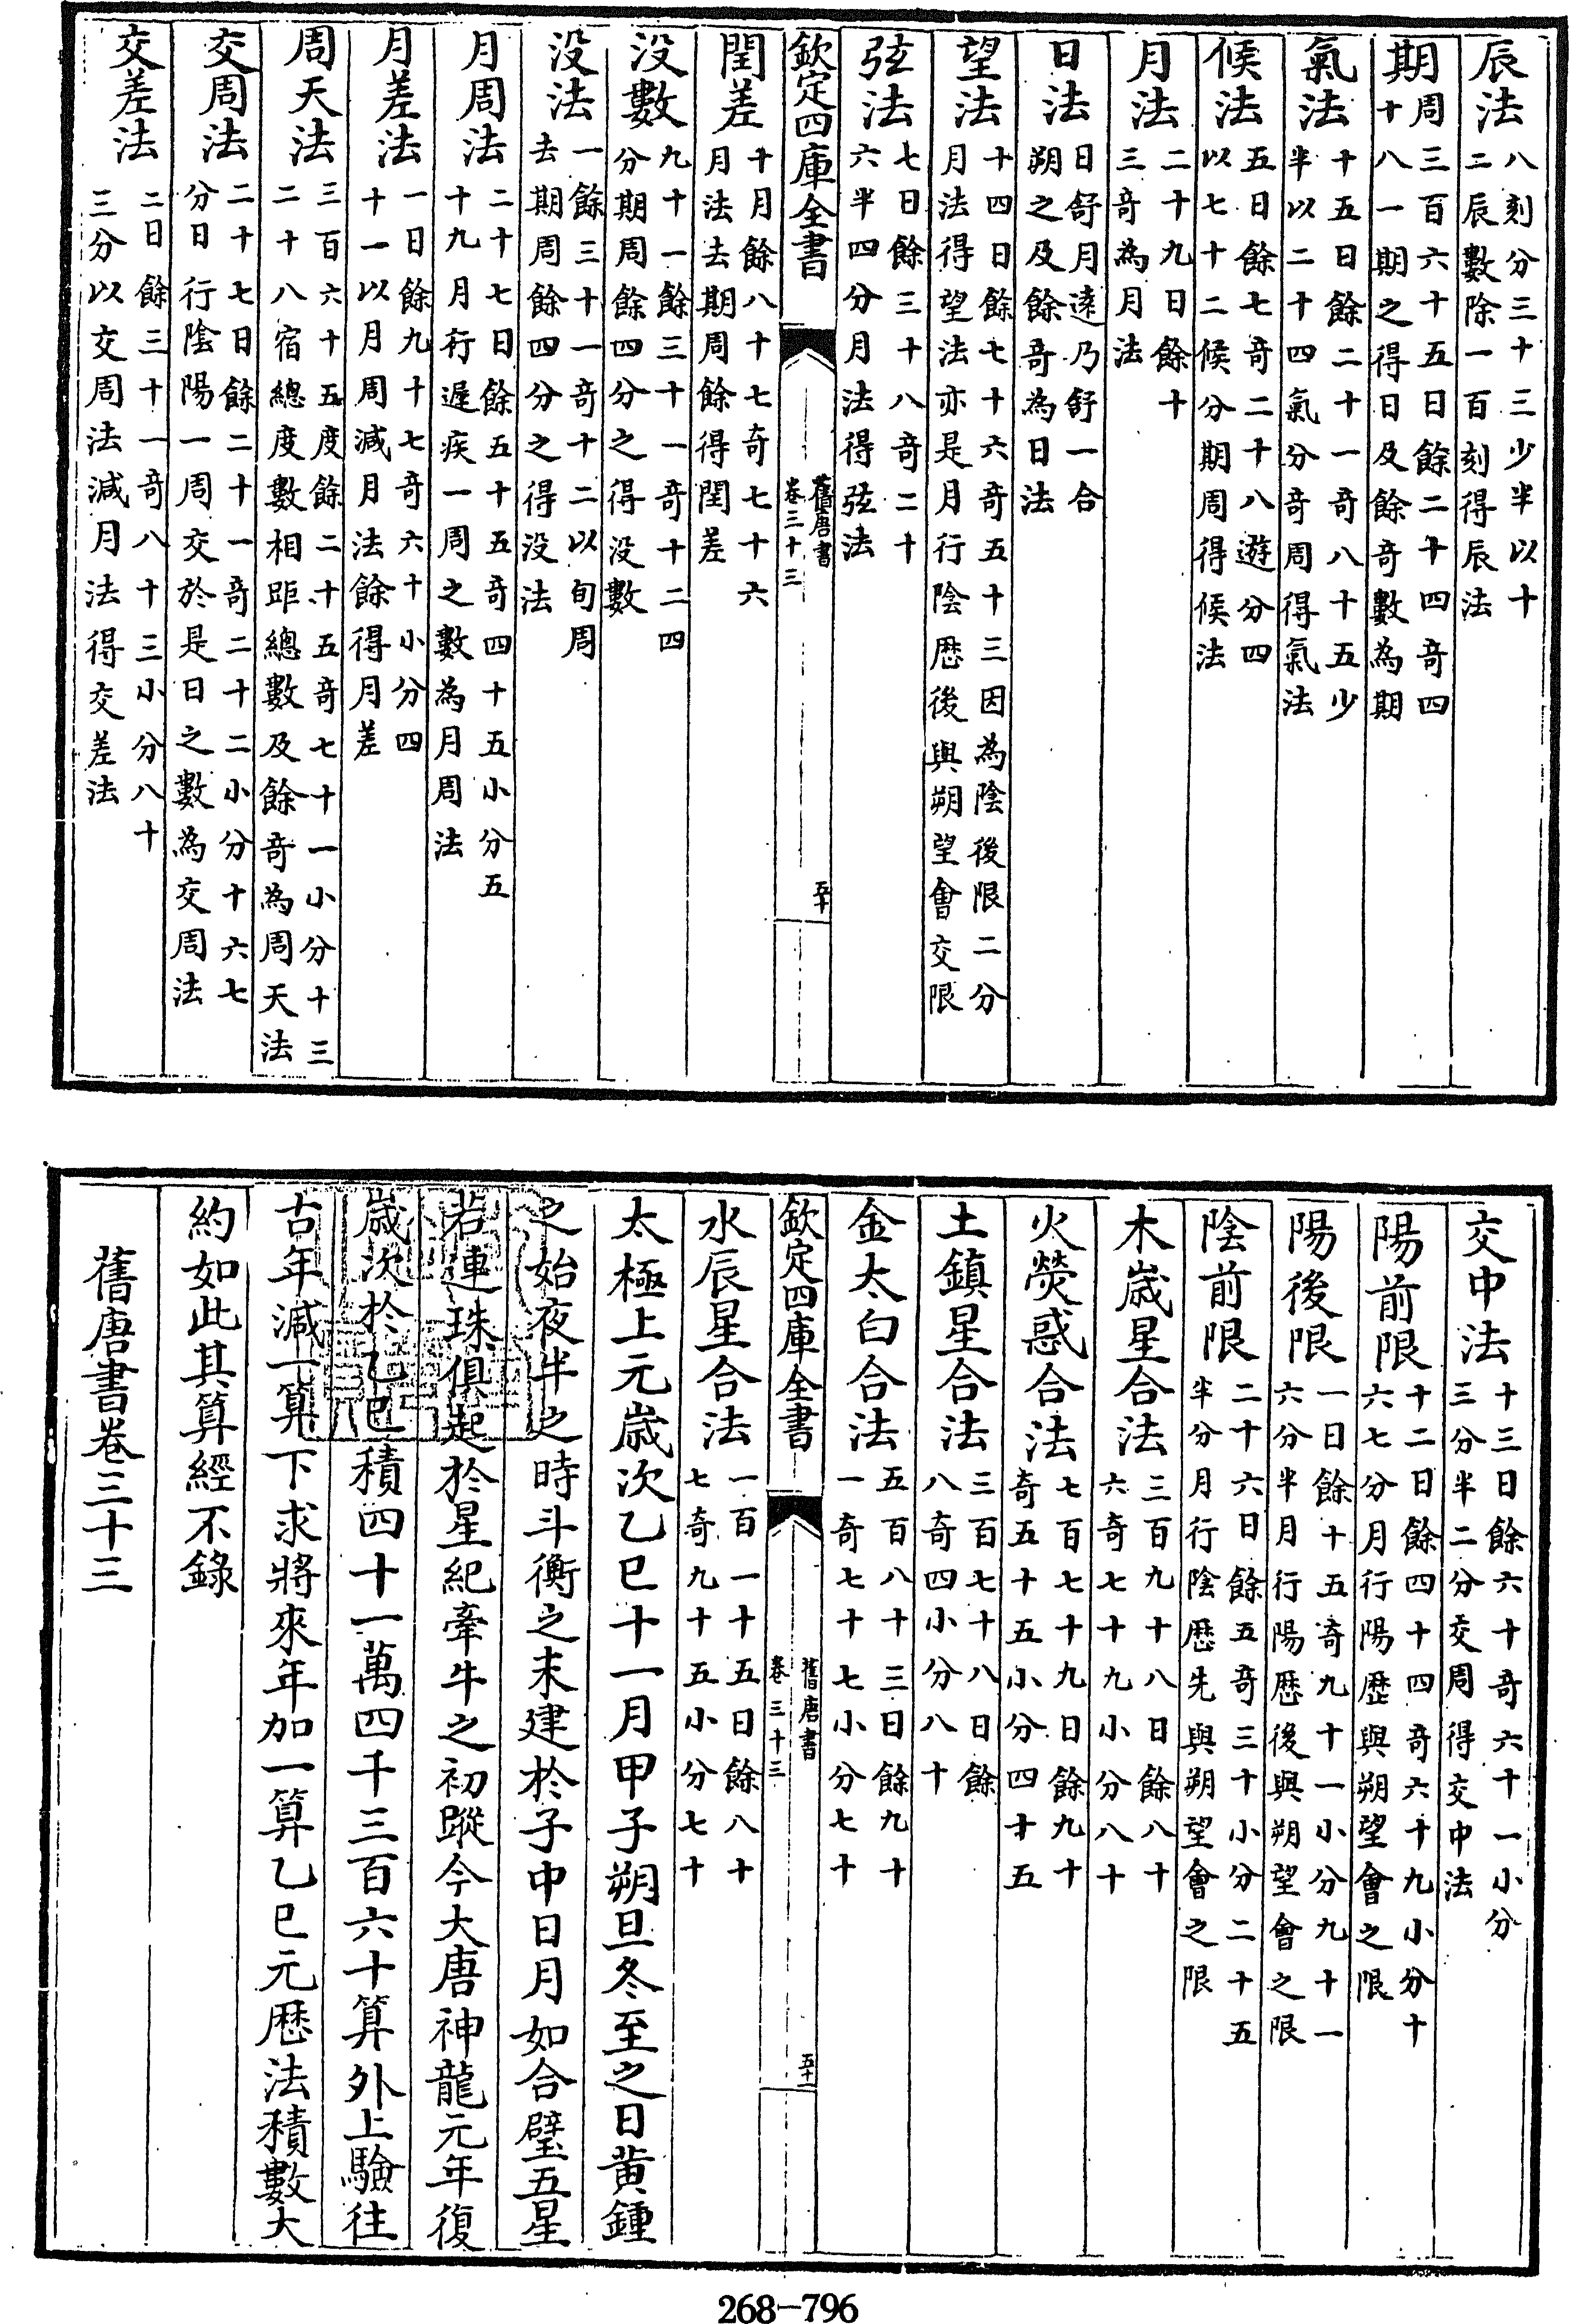 辰法八刻分三十三少半以十
二辰數除一百刻得辰法
期周三百六十五日餘二十四奇四
十八一期之得日及餘奇數為期
氣法十五日餘二十一奇八十五少
半以二十四氣分奇周得氣法
候法五日餘七奇二十八遊分四
以七十二候分期周得候法
月法二十九日餘十
三奇為月法
日法日舒月逺乃舒一合
朔之及餘奇為日法
望法十四日餘七十六奇五十三因為陰後限二分
月法得望法亦是月行陰厯後與朔望會交限
弦法七日餘三十八奇二十
六半四分月法得弦法
欽定四庫全書
舊唐書
卷三十三
五十
閏差十月餘八十七奇七十六
月法去期周餘得閏差
没數九十一餘三十一奇十二四
分期周餘四分之得没數
没法一餘三十一奇十二以旬周
去期周餘四分之得没法
月周法二十七日餘五十五奇四十五小分五
十九月行遲疾一周之數為月周法
月差法一日餘九十七奇六十小分四
十一以月周減月法餘得月差
周天法三百六十五度餘二十五奇七十一小分十三
二十八宿總度數相距總數及餘奇為周天法
交周法二十七日餘二十一奇二十二小分十六七
分日行陰陽一周交於是日之數為交周法
交差法二日餘三十一奇八十三小分八十
三分以交周法減月法得交差法
交中法十三日餘六十奇六十一小分
三分半二分交周得交中法
陽前限十二日餘四十四奇六十九小分十
六七分月行陽歷與朔望會之限
陽後限一日餘十五奇九十一小分九十一
六分半月行陽厯後與朔望會之限
陰前限二十六日餘五奇三十小分二十五
半分月行陰厯先與朔望會之限
木歲星合法三百九十八日餘八十
六奇七十九小分八十
火熒惑合法七百七十九日餘九十
奇五十五小分四十五
土鎮星合法三百七十八日餘
八奇四小分八十
金太白合法五百八十三日餘九十
一奇七十七小分七十
欽定四庫全書
舊唐書
卷三十三
五十一
水辰星合法一百一十五日餘八十
七奇九十五小分七十
太極上元歲次乙巳十一月甲子朔旦冬至之日黄鍾
之始夜半之時斗衡之末建於子中日月如合璧五星
若連珠俱起於星紀牽牛之初蹤今大唐神龍元年復
歲次於乙巳積四十一萬四千三百六十算外上驗往
古年減一算下求將來年加一算乙巳元厯法積數大
約如此其算經不錄
舊唐書卷三十三
268-796